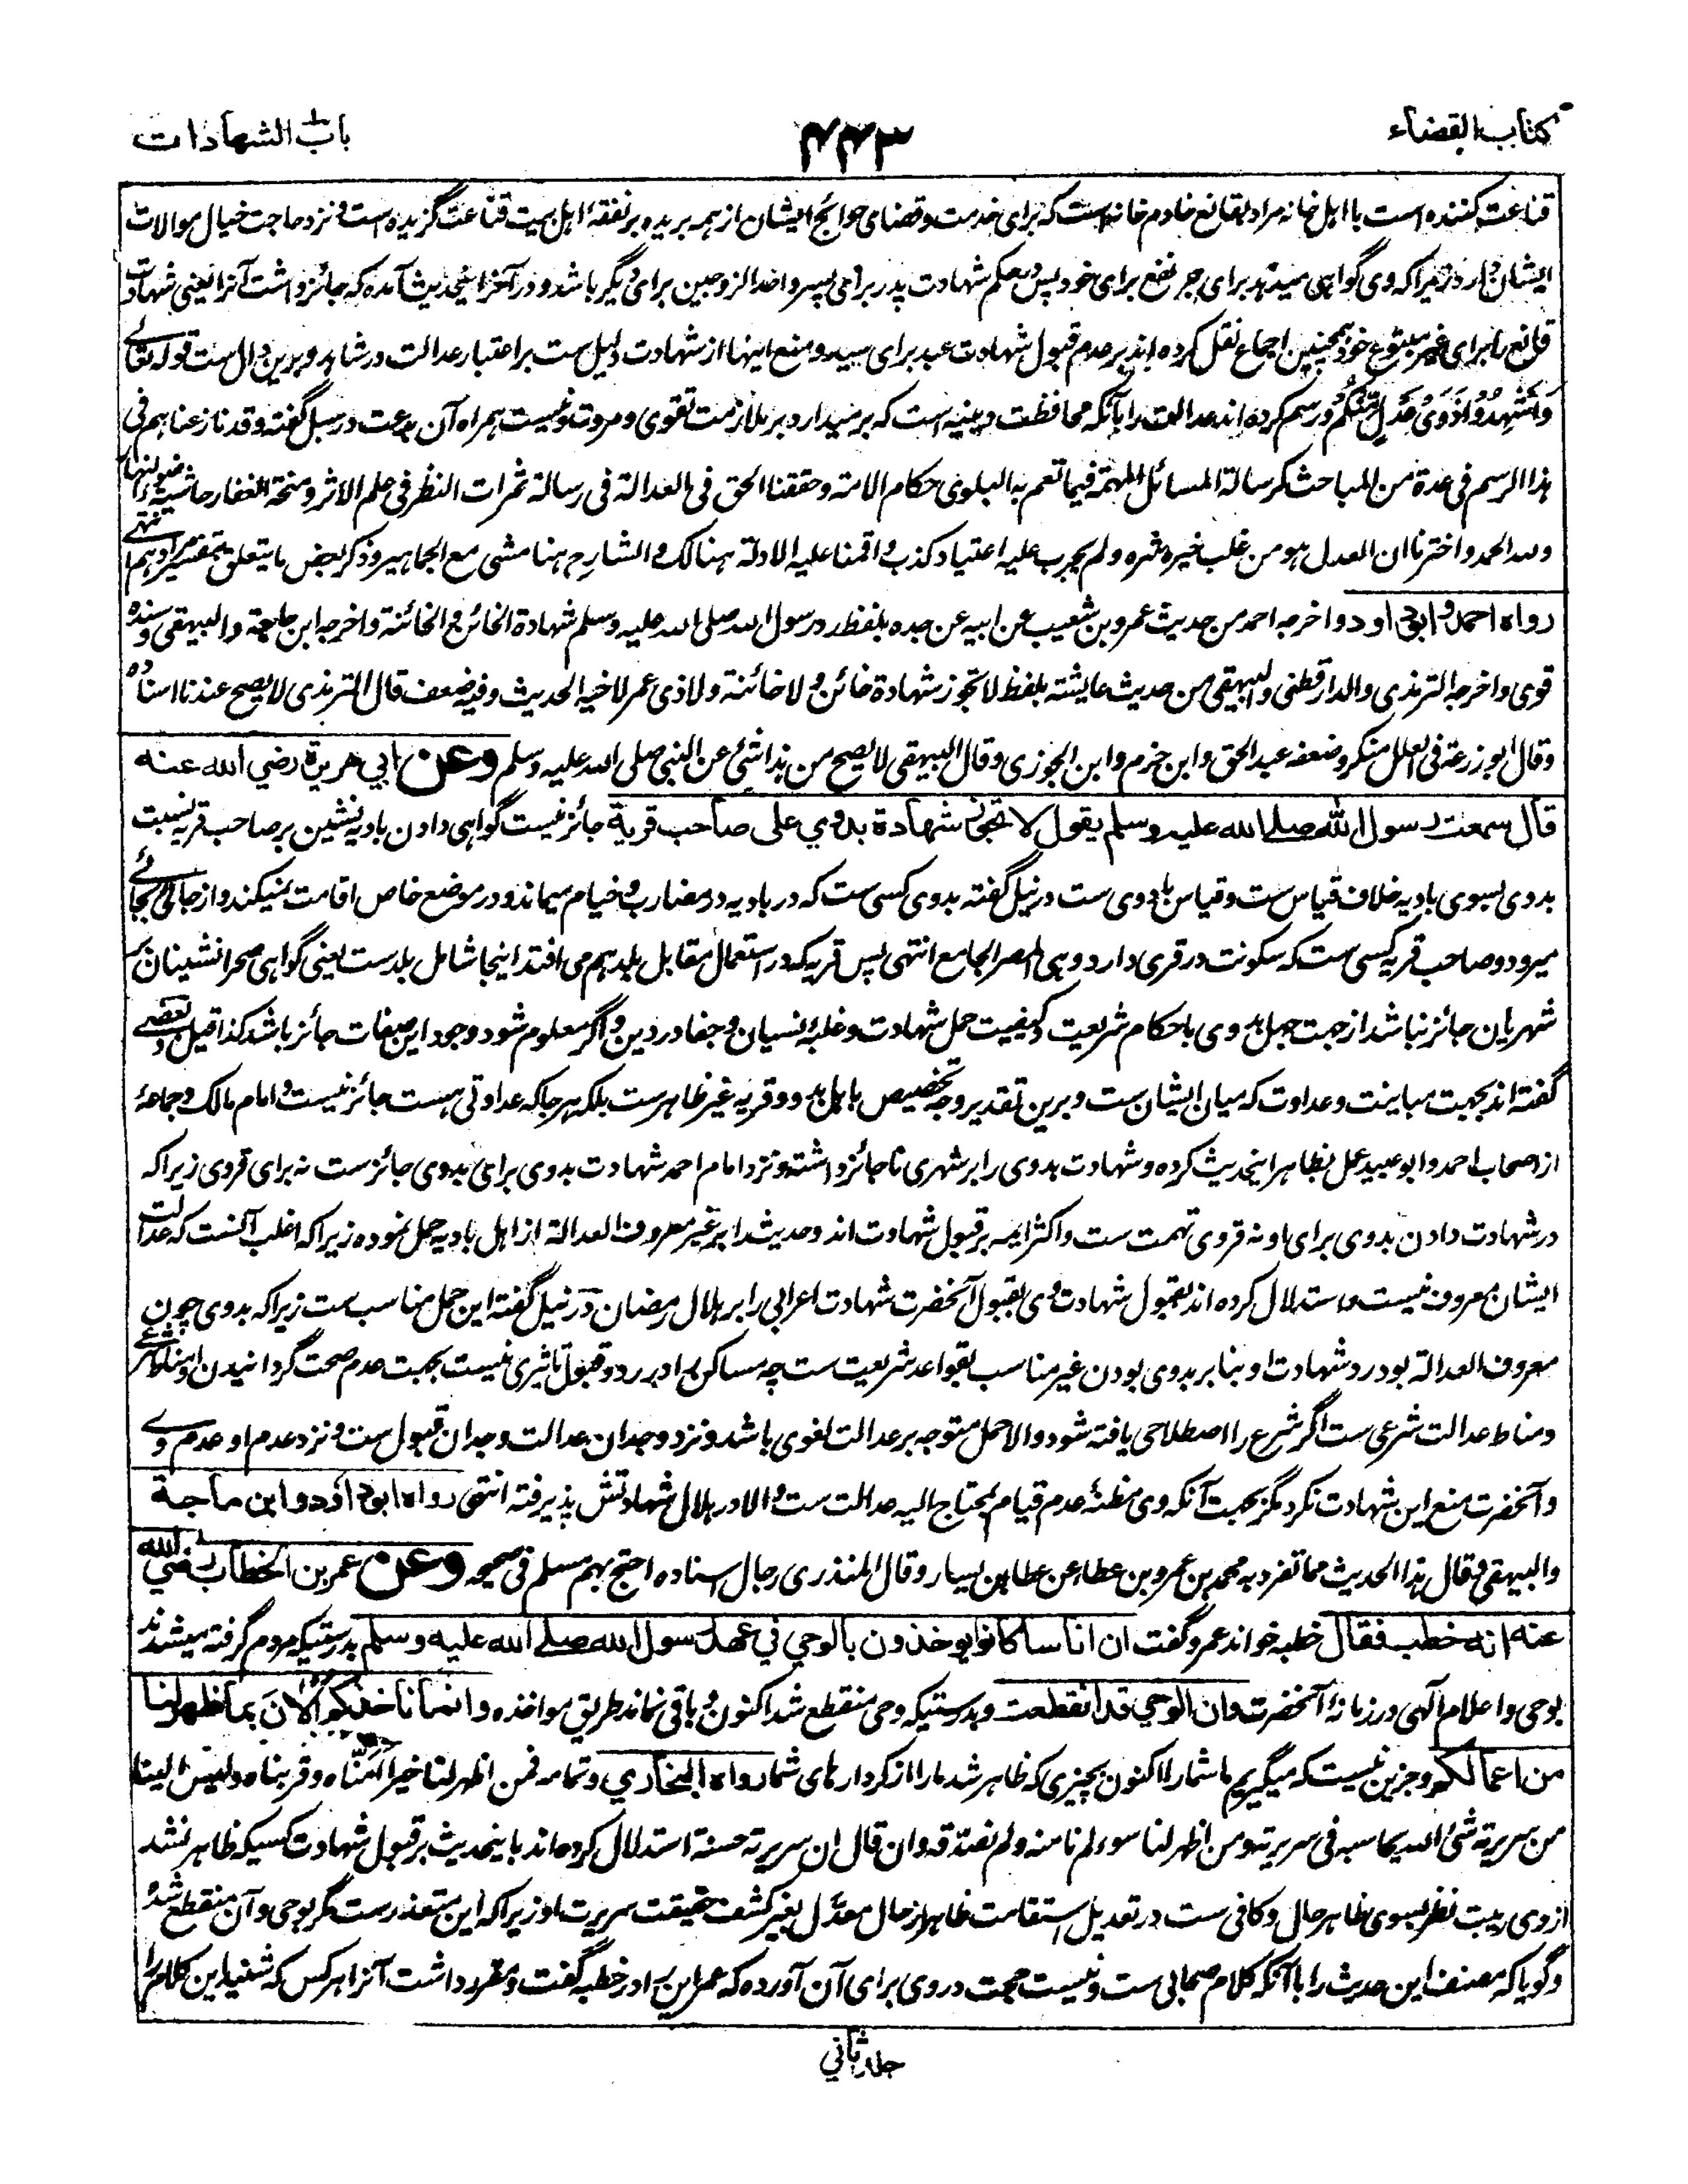 کتاب القضاء
۴۴۳
باب الشهادات
قناعت کننده است با اهل خانه مراد بقانع خادم خانه است که برای خدمت و قضای حوائج ایشان از همه بریده و بر نفقهٔ اهل بیت قناعت گزیده است و نزد حاجت خیال موالات
ایشان دارد زیرا که وی گواهی میدهد برای جر نفع برای خود پس حکم شهادت پدر برای پسر و احد الزوجین برای دیگر باشد و در آخر اینحدیث آمده که جائز داشت آنرا یعنی شهادت
قانع را برای غیر متبوع خود همچنین اجماع نقل کرده اند بر عدم قبول شهادت عبد برای سید و منع اینها از شهادت دلیل ست بر اعتبار عدالت در شاهد و برین دال ست قوله تعالے
وَاَشْهِدُوْا ذَوَیْ عَدْلٍ مِّنْكُمْ و رسم کرده اند عدالت را بآنکه محافظت دینیه است که بر میدارد بر ملازمت تقوی و مروت و نیست همراه آن بدعت در سبل گفته و قد نازعناهم فی
هذا الرسم فی عدة من المباحث کرسالة المسائل المهمة فیما تعم به البلوی حکام الامة و حققنا الحق فی العدالة فی رسالة ثمرات النظر فی علم الاثر و منحة الغفار حاشیة ضوء النهار
ولله الحمد و اخترنا ان العدل هو من غلب خیره شره و لم یجرب علیه اعتیاد کذب و اقمنا علیه الادلة هنالک و الشارح هنا مشی مع الجماهیر و ذکر بعض ما یتعلق بتفسیر مرادهم انتهے
رواه احمد و ابو داود و اخرجه احمد من حدیث عمرو بن شعیب عن ابیه عن جده بلفظ رد رسول الله صلی الله علیه وسلم شهادة الخائن و الخائنة و اخرجه ابن ماجة و البیهقی و سنده
قوی و اخرجه الترمذی والدارقطنی و البیهقی من حدیث عایشة بلفظ لا تجوز شهادة خائن و لا خائنة و لا ذی غمر لاخیه الحدیث و فیه ضعف قال الترمذی لا یصح عندنا اسناده
و قال ابو زرعة فی العلل منکر و ضعفه عبد الحق و ابن حزم و ابن الجوزی و قال البیهقی لا یصح من هذا شئ عن النبی صلی الله علیه وسلم وعن ابي هريرة رضي الله عنه
قال سمعت رسول الله صلے الله عليه وسلم يقول لا تجوز شهادة بدوي على صاحب قرية جائز نیست گواهی دادن بادیه نشین بر صاحب قریه نسبت
بدوی بسوی بادیه خلاف قیاس ست و قیاس بادوی ست در نیل گفته بدوی کسی ست که در بادیه در مضارب و خیام میماند و در موضع خاص اقامت نمیکند و از جائے بجائے
میرود و صاحب قریه کسی ست که سکونت در قری دارد و هی المصر الجامع انتهی پس قریه که در استعمال مقابل بلد هم می افتد اینجا شامل بلد ست یعنی گواهی صحرا نشینان بر
شهریان جائز نباشد از جهت جهل بدوی با حکام شریعت و کیفیت حمل شهادت و غلبهٔ نسیان و جفا در دین و اگر معلوم شود وجود این صفات جائز باشد کذا قیل و بعضے
گفته اند بجهت مباینت و عداوت که میان ایشان ست و برین تقدیر وجه تخصیص باهل بدو و قریه غیر ظاهر ست بلکه هر جا که عداوتی هست جائز نیست و امام مالک و جماعهٔ
از اصحاب احمد و ابو عبید عمل بظاهر اینحدیث کرده و شهادت بدوی را بر شهری نا جائز داشته و نزد امام احمد شهادت بدوی برای بدوی جائز ست نه برای قروی زیرا که
در شهادت دادن بدوی برای او نه قروی تهمت ست و اکثر ایمه بر قبول شهادت اند و حدیث را بر غیر معروف العدالة از اهل بادیه حمل نموده زیرا که اغلب آنست که عدالت
ایشان معروف نیست و استدلال کرده اند بقبول شهادت وی بقبول آنحضرت شهادت اعرابی را بر هلال رمضان در نیل گفته این حمل مناسب ست زیرا که بدوی چون
معروف العدالة بود رد شهادت او بنا بر بدوی بودن غیر مناسب بقواعد شریعت ست چه مساکن را در رد و قبول تاثیری نیست بجهت عدم صحت گردانیدن او مناط شرعے
و مناط عدالت شرعی ست اگر شرع را اصطلاحی یافته شود و الا حمل متوجه بر عدالت لغوی باشد و نزد وجدان عدالت وجدان قبول ست و نزد عدم او عدم وے
و آنحضرت منع این شهادت نکرد مگر بجهت آنکه وی مظنهٔ عدم قیام بمحتاج الیه عدالت ست و الا در هلال شهادتش پذیرفته انتهی رواه ابو داؤد و ابن ماجة
و البیهقی و قال هذا الحدیث مما تفرد به محمد بن عمرو بن عطاء عن عطا بن یسار و قال المنذری رجال اسناده احتج بهم مسلم فی صحیحه وعن عمر بن الخطاب رضي الله
عنه انه خطب فقال خطبه خواند عمر و گفت ان اناسا كانوا يوخذون بالوحي في عهد رسول الله صلے الله عليه وسلم بدرستیکه مردم گرفته میشدند
بوحی و اعلام آلهی در زمانهٔ آنحضرت وان الوحي قد انقطعت و بدرستیکه وحی منقطع شد اکنون و باقی نماند طریق مواخذه وانما ناخذكم الانَ بما ظهر لنا
من اعمالكم و جز این نیست که میگیریم ما شما را اکنون بچیزی که ظاهر شد ما را از کردار های شما رواه البخاري و تمامه فمن اظهر لنا خیرا امّنّاه و قربناه و لیس الینا
من سریرته شئ الله یحاسبه فی سریرته و من اظهر لنا سوء لم نامنه و لم نصدّقه و ان قال ان سریرته حسنة استدلال کرده اند باینحدیث بر قبول شهادت کسیکه ظاهر نشد
از وی ریبت نظر بسوی ظاهر حال و کافی ست در تعدیل استقامت ظاهر از حال معدّل بغیر کشف حقیقت سریرت او زیرا که این متعذر ست مگر بوحی و آن منقطع شد
و گویا که مصنف این حدیث را با آنکه کلام صحابی ست و نیست حجت در وی برای آن آورده که عمر این را در خطبه گفت و مقرر داشت آنرا هر کس که شنید این کلام را
جلد ثانی